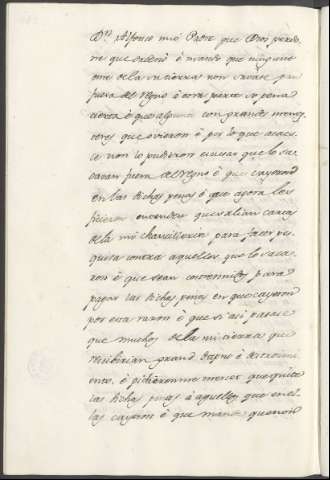 Dn Alfonso mio Padre que Dios perdo
ne que ordenó é mandó que ninguno
ome de la mi tierra non sacase pan
fuera del Regno é otra pieza so pena
cierta é que algunos con grandes menes
teres que ovieron é por lo que acaes
ce non lo pudieron escusar que lo sa
caran fuera del Regno é que cayeron
en las dichas penas é que agora les
ficieron entender que salian cartas
de la mi chancilleria para facer pes
quisa contra aquellos que lo saca
ron é que sean costreñidos para
pagar las dichas penas en que cayeron
por esta razon é que si asi pasase
que muchos de la mi tierra que
rescibirian grand daño é destroimi
ento, é pidieronme merced que quite
las dichas penas á aquellos que en el
las cayeron é que mande que non